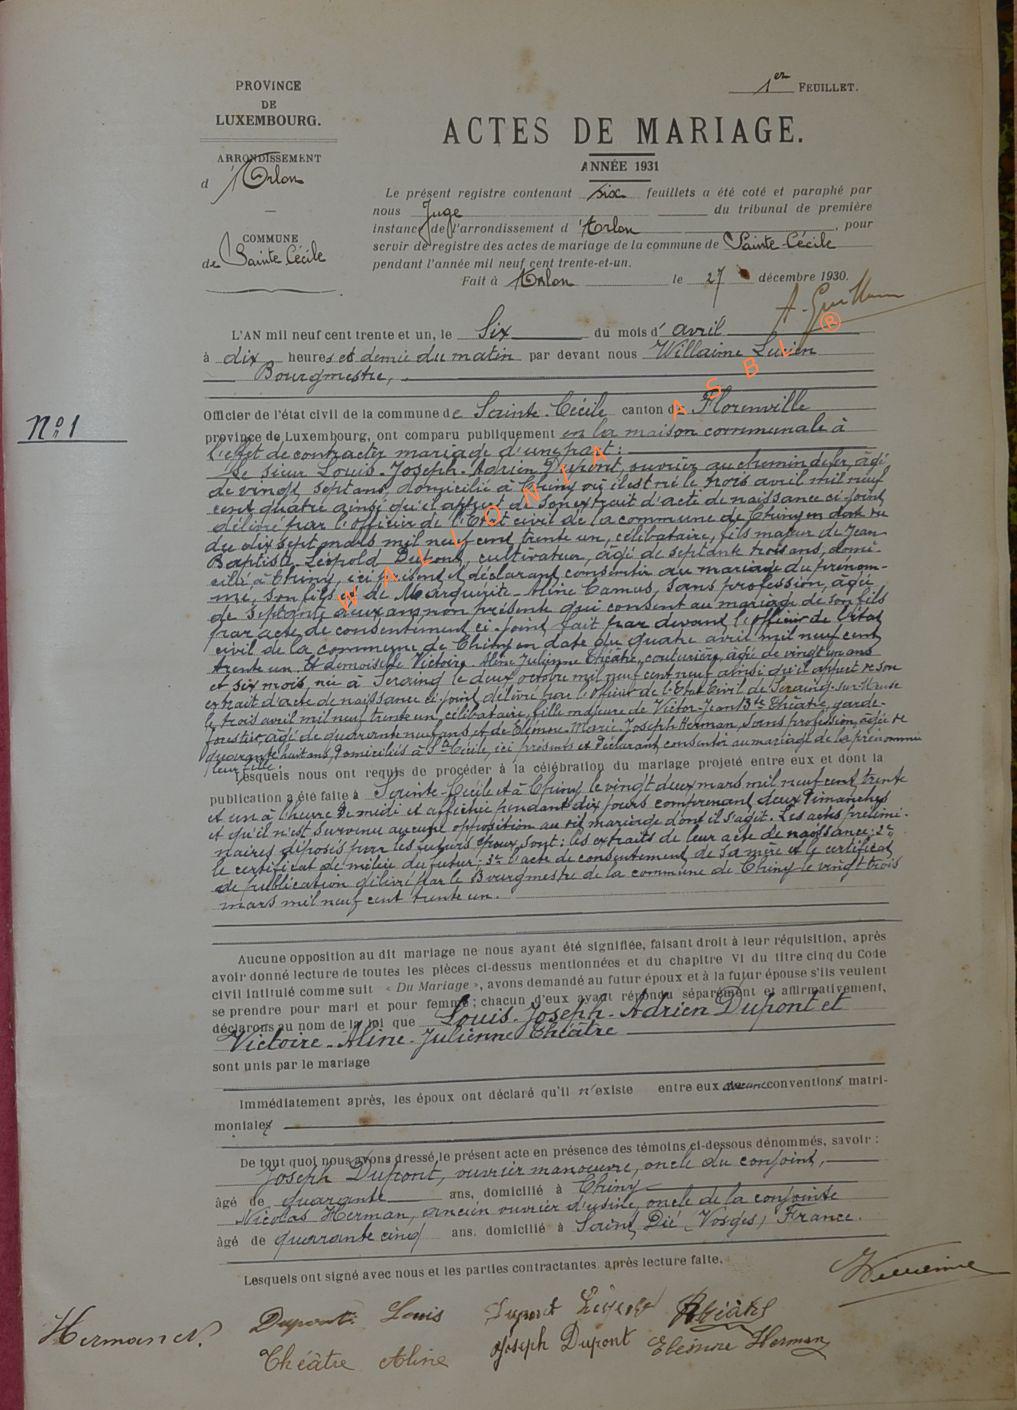 PROVINCE
DE
LUXEMBOURG.
ARRONDISSEMENT
d'Arlon
COMMUNE
de Sainte Cécile
1er FEUILLET.
ACTES DE MARIAGE.
ANNÉE 1931
Le présent registre contenant six feuillets a été coté et paraphé par
nous Juge du tribunal de première
instance de l'arrondissement d'Arlon, pour
servir de registre des actes de mariage de la commune de Sainte-Cécile
pendant l'année mil neuf cent trente-et-un.
Fait à Arlon le 27 décembre 1930.
L'AN mil neuf cent trente et un, le Six du mois d'avril
à dix heures et demie du matin par devant nous Willaime Lucien
Bourgmestre,
N° 1
Officier de l'état civil de la commune de Sainte-Cécile canton de Florenville
province de Luxembourg, ont comparu publiquement en la maison communale à
l'effet de contracter mariage d'une part:
Le sieur Louis-Joseph-Adrien Dupont, ouvrier au chemin de fer, âgé
de vingt sept ans, domicilié à Chiny où il est né le trois avril mil neuf
cent quatre ainsi qu'il appert de son extrait d'acte de naissance ci-joint
délivré par l'officier de l'Etat civil de la commune de Chiny en date du
du dix sept mars mil neuf cent trente un, célibataire, fils majeur de Jean
Baptiste Léopold Dupont, cultivateur, âgé de septante trois ans, domi-
cilié à Chiny, ici présent et déclarant consentir au mariage du prénom-
mé, son fils et de Marguerite-Aline Camus, sans profession, âgée
de septante deux ans non présente qui consent au mariage de son fils
par acte de consentement ci-joint fait par devant l'officier de l'état
civil de la commune de Chiny en date du quatre avril mil neuf cent
trente un. Et demoiselle Victoire Aline Julienne Théâtre, couturière, âgée de vingt un ans
et six mois, née à Seraing le deux octobre mil neuf cent neuf ainsi qu'il appert de son
extrait d'acte de naissance ci-joint délivré par l'officier de l'Etat Civil de Seraing-sur-Meuse
le trois avril mil neuf trente un, célibataire, fille majeure de Victor-Jean Bte Théâtre, garde-
forestier, âgé de quarante neuf ans, et de Marie-Joseph Herman, sans profession, âgée de
quarante huit ans, domiciliés à Ste Cécile, ici présents et déclarant consentir au mariage de la prénommée
leur fille.
Lesquels nous ont requis de procéder à la célébration du mariage projeté entre eux et dont la
publication a été faite à Sainte-Cécile et à Chiny le vingt deux mars mil neuf cent trente
et un à l'heure de midi et affichée pendant dix jours comprenant deux Dimanches
et qu'il n'est survenu aucune opposition au dit mariage dont il s'agit. Les actes prélimi-
naires déposés par les futurs époux sont: les extraits de leur acte de naissance; 2°
le certificat de milice du futur; 3° l'acte de consentement de sa mère et le certificat
de publication délivré par le Bourgmestre de la commune de Chiny le vingt trois
mars mil neuf cent trente un.
Aucune opposition au dit mariage ne nous ayant été signifiée, faisant droit à leur réquisition, après
avoir donné lecture de toutes les pièces ci-dessus mentionnées et du chapitre VI du titre cinq du Code
civil intitulé comme suit « Du Mariage », avons demandé au futur époux et à la futur épouse s'ils veulent
se prendre pour mari et pour femme; chacun d'eux ayant répondu séparément et affirmativement,
déclarons au nom de la loi que Louis-Joseph-Adrien Dupont et
Victoire-Aline-Julienne Théâtre
sont unis par le mariage
Immédiatement après, les époux ont déclaré qu'il n'existe entre eux aucune conventions matri-
moniales
De tout quoi nous avons dressé le présent acte en présence des témoins ci-dessous dénommés, savoir :
Joseph Dupont, ouvrier manoeuvre, oncle du conjoint,
âgé de quarante ans, domicilié à Chiny
Nicolas Herman, ancien ouvrier d'usine, oncle de la conjointe
âgé de quarante cinq ans, domicilié à Saint Dié (Vosges) France.
Lesquels ont signé avec nous et les parties contractantes après lecture faite.
Herman N. Dupont Louis Dupont Théâtre Willaime
Théâtre Aline Joseph Dupont Herman
WALLONIA ASBL ®